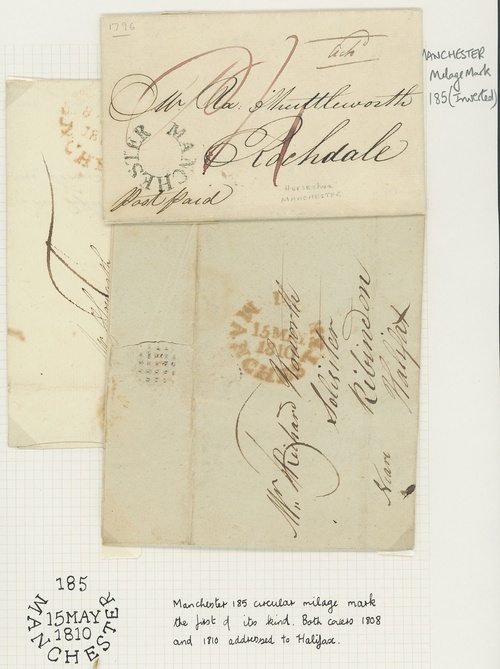 1796
MANCHESTER
Milage Mark
185 (Inverted)
Mr Ra. Shuttleworth
Rochdale
MANCHESTER
Post paid
Horseshoe
MANCHESTER
MANCHESTER
15 MAY
1810
Mr Richard
Solicitor
Near Halifax
185
15 MAY
1810
MANCHESTER
Manchester 185 circular milage mark
the first of its kind. Both covers 1808
and 1810 addressed to Halifax.